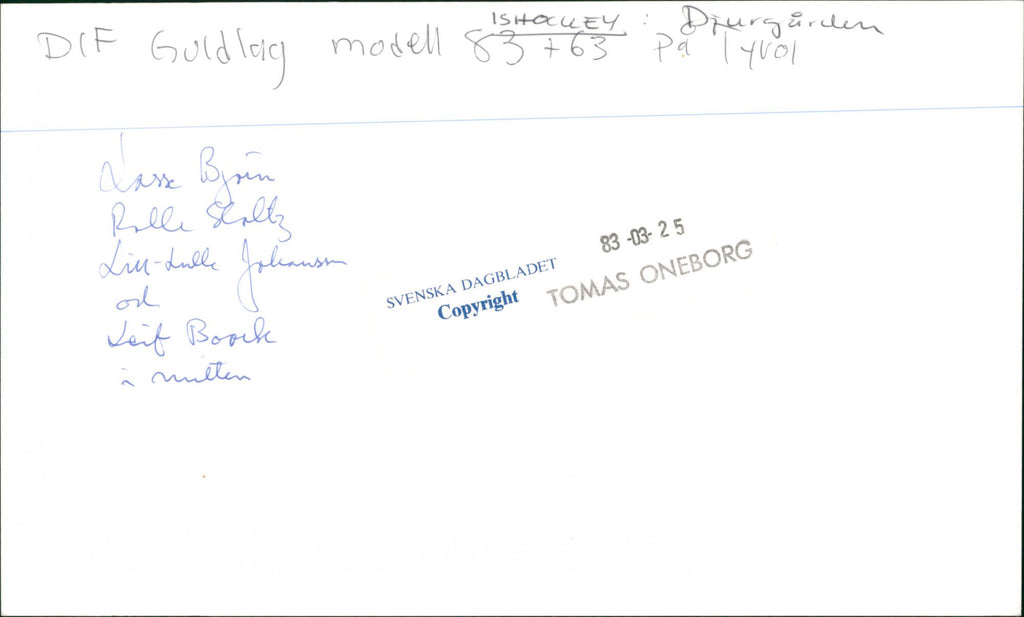 ISHOCKEY : Djurgården
DIF Guldlag modell 83 + 63 på Tyrol
Lasse Björn
Rolle Stoltz
Lill-Lulle Johansson
och
Leif Boork
i mitten
83-03-25
SVENSKA DAGBLADET TOMAS ONEBORG
Copyright